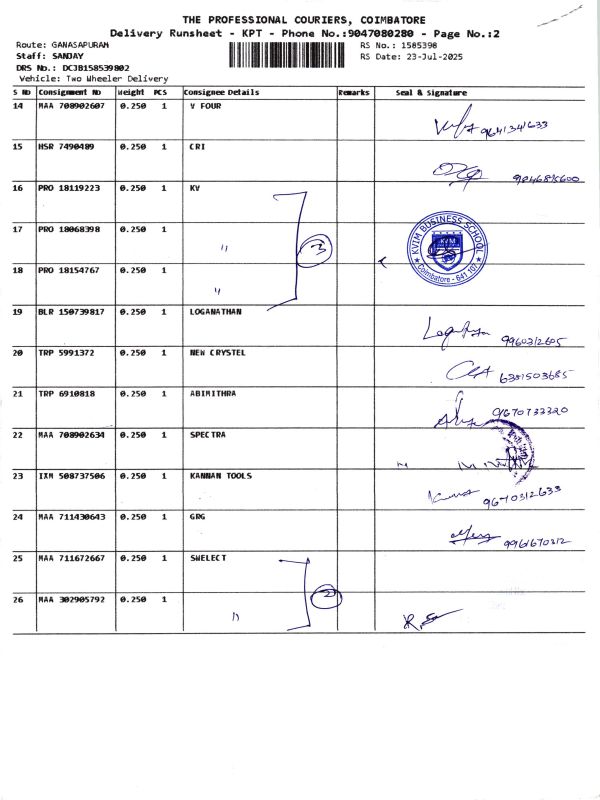 THE PROFESSIONAL COURIERS, COIMBATORE
Delivery Runsheet - KPT - Phone No.:9047080280 - Page No.:2
Route: GANASAPURAM
RS No.: 1585398
Staff: SANJAY
RS Date: 23-Jul-2025
DRS No.: DCJB158539802
Vehicle: Two Wheeler Delivery
S No Consignment No Weight PCS Consignee Details Remarks Seal & Signature
14 MAA 708902607 0.250 1 V FOUR
9641341633
15 HSR 7490489 0.250 1 CRI
16 PRO 18119223 0.250 1 KV
17 PRO 18068398 0.250 1 " 3
KVIM BUSINESS SCHOOL
KVIM
Coimbatore - 641 107
18 PRO 18154767 0.250 1 "
19 BLR 150739817 0.250 1 LOGANATHAN
9960312605
20 TRP 5991372 0.250 1 NEW CRYSTEL
6381503685
21 TRP 6910818 0.250 1 ABIMITHRA
9670733320
22 MAA 708902634 0.250 1 SPECTRA
23 IXM 508737506 0.250 1 KANNAN TOOLS
9670312633
24 MAA 711430643 0.250 1 GRG
9961670312
25 MAA 711672667 0.250 1 SWELECT
2
26 MAA 302905792 0.250 1 "